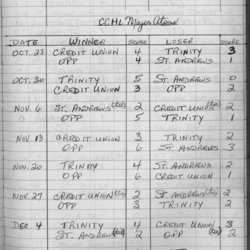 CCHL Major Atoms
DATE WINNER SCORE LOSER SCORE
OCT. 23 CREDIT UNION 4 TRINITY 3
OPP 4 ST. ANDREWS 1
OCT. 30 TRINITY 5 ST. ANDREWS 0
CREDIT UNION 3 OPP 2
NOV. 6 ST. ANDREWS (tie) 2 CREDIT UNION (tie) 2
OPP 5 TRINITY 1
NOV. 13 CREDIT UNION 3 TRINITY 2
OPP 6 ST. ANDREWS 3
NOV. 20 TRINITY 4 ST. ANDREWS 2
OPP 6 CREDIT UNION 1
NOV. 27 CREDIT UNION (tie) 2 ST. ANDREWS (tie) 2
OPP 3 TRINITY 2
DEC. 4 TRINITY 4 CREDIT UNION 3
ST. ANDREWS (tie) 2 OPP (tie) 2